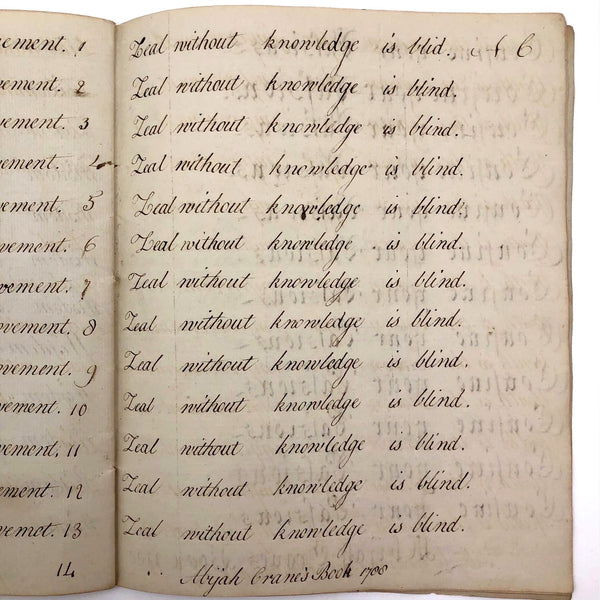 vement. 1
vement. 2
vement. 3
vement. 4
vement. 5
vement. 6
vement. 7
vement. 8
vement. 9
vement. 10
vement. 11
vement. 12
vemot. 13
14
Zeal without knowledge is blid. A C
Zeal without knowledge is blind.
Zeal without knowledge is blind.
Zeal without knowledge is blind.
Zeal without knowledge is blind.
Zeal without knowledge is blind.
Zeal without knowledge is blind.
Zeal without knowledge is blind.
Zeal without knowledge is blind.
Zeal without knowledge is blind.
Zeal without knowledge is blind.
Zeal without knowledge is blind.
Zeal without knowledge is blind.
Abijah Crane's Book 1788